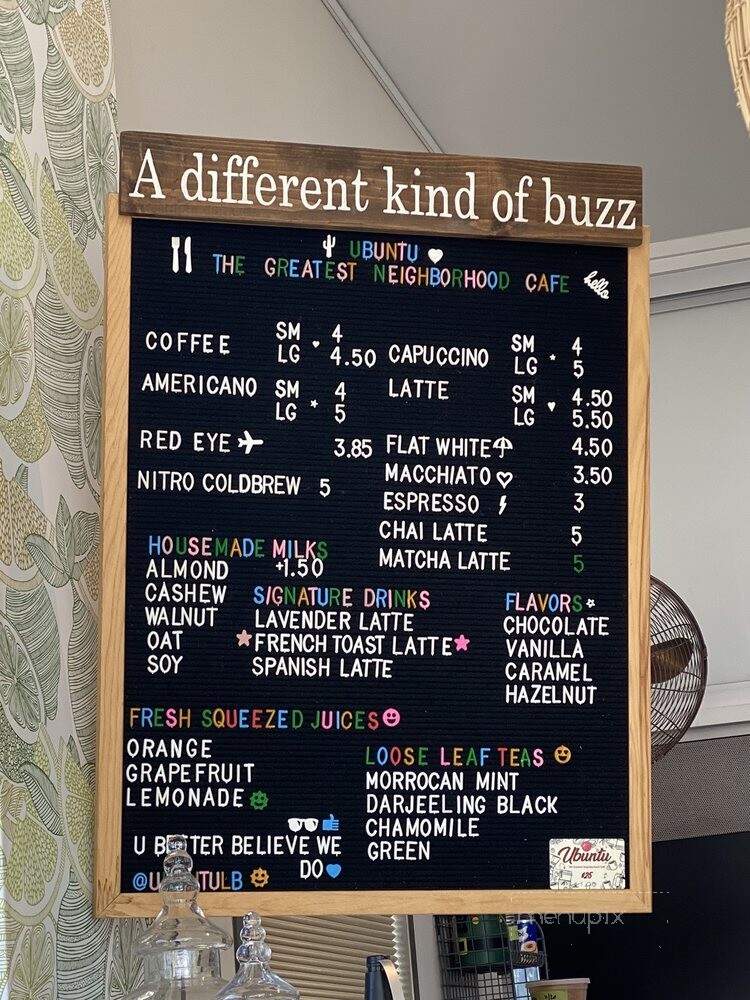 A different kind of buzz
UBUNTU
THE GREATEST NEIGHBORHOOD CAFE
hello
COFFEE SM 4
LG 4.50
AMERICANO SM 4
LG 5
RED EYE 3.85
NITRO COLDBREW 5
CAPUCCINO SM 4
LG 5
LATTE SM 4.50
LG 5.50
FLAT WHITE 4.50
MACCHIATO 3.50
ESPRESSO 3
CHAI LATTE 5
MATCHA LATTE 5
HOUSEMADE MILKS
+1.50
ALMOND
CASHEW
WALNUT
OAT
SOY
SIGNATURE DRINKS
LAVENDER LATTE
FRENCH TOAST LATTE
SPANISH LATTE
FLAVORS
CHOCOLATE
VANILLA
CARAMEL
HAZELNUT
FRESH SQUEEZED JUICES
ORANGE
GRAPEFRUIT
LEMONADE
LOOSE LEAF TEAS
MORROCAN MINT
DARJEELING BLACK
CHAMOMILE
GREEN
U BETTER BELIEVE WE
DO
@UBUNTULB
Ubuntu
menupix